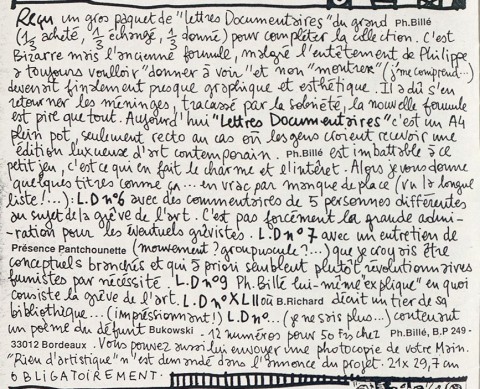 Reçu un gros paquet de "lettres Documentaires" du grand Ph.Billé
(1/3 acheté, 1/3 échangé, 1/3 donné) pour compléter la cellection. C'est
Bizarre mais l'ancienne formule, malgré l'entêtement de Philippe
à toujours voulloir "donner à voir" et non "montrer" (j'me comprend...)
devenait finalement presque graphique et esthétique. Il a dû s'en
retourner les méninges, tracassé par la sobriété, la nouvelle formule
est pire que tout. Aujourd'hui "Lettres Documentaires" c'est un A4
plein pot, seulement recto au cas où les gens croient recevoir une
édition luxueuse d'art contemporain. Ph.Billé est imbattable à ce
petit jeu, c'est ce qui en fait le charme et l'intéret. Alors je vous donne
quelques titres comme ça... en vrac par manque de place (vu la longue
liste!...): L.D n°6 avec des commentaires de 5 personnes différentes
au sujet de la grêve de l'art. C'est pas forcément la grande admi-
-ration pour les éventuels grévistes. L.D n°7 avec un entretien de
Présence Pantchounette (mouvement? groupuscule?...) que je croyais être
conceptuels branchés et qui à priori semblent plutôt révolutionnaires
fumistes par nécessité. L.D n°9 Ph.Billé lui-même "explique" en quoi
consiste la grêve de l'art. L.D n°XLII où B.Richard décrit un tier de sa
bibliothèque... (impréssionnant!) L.D n°... (je ne sais plus...) contenant
un poème du défunt Bukowski. 12 numéros pour 50 Frs chez Ph.Billé, B.P 249 -
33012 Bordeaux. Vous pouvez aussi lui envoyer une photocopie de votre Main.
"Rien d'artistique" n'est demandé dans l'annonce du projet. 21 x 29,7 cm
OBLIGATOIREMENT.